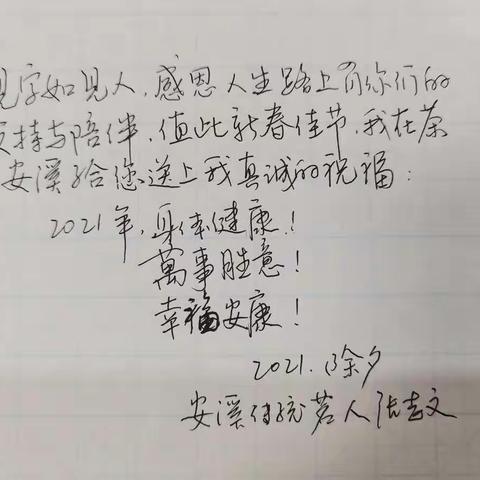 见字如见人,感恩人生路上有你们的
支持与陪伴,值此新春佳节,我在茶
安溪给您送上我真诚的祝福:
2021年,身体健康!
萬事胜意!
幸福安康!
2021.除夕
安溪传统茗人张志文